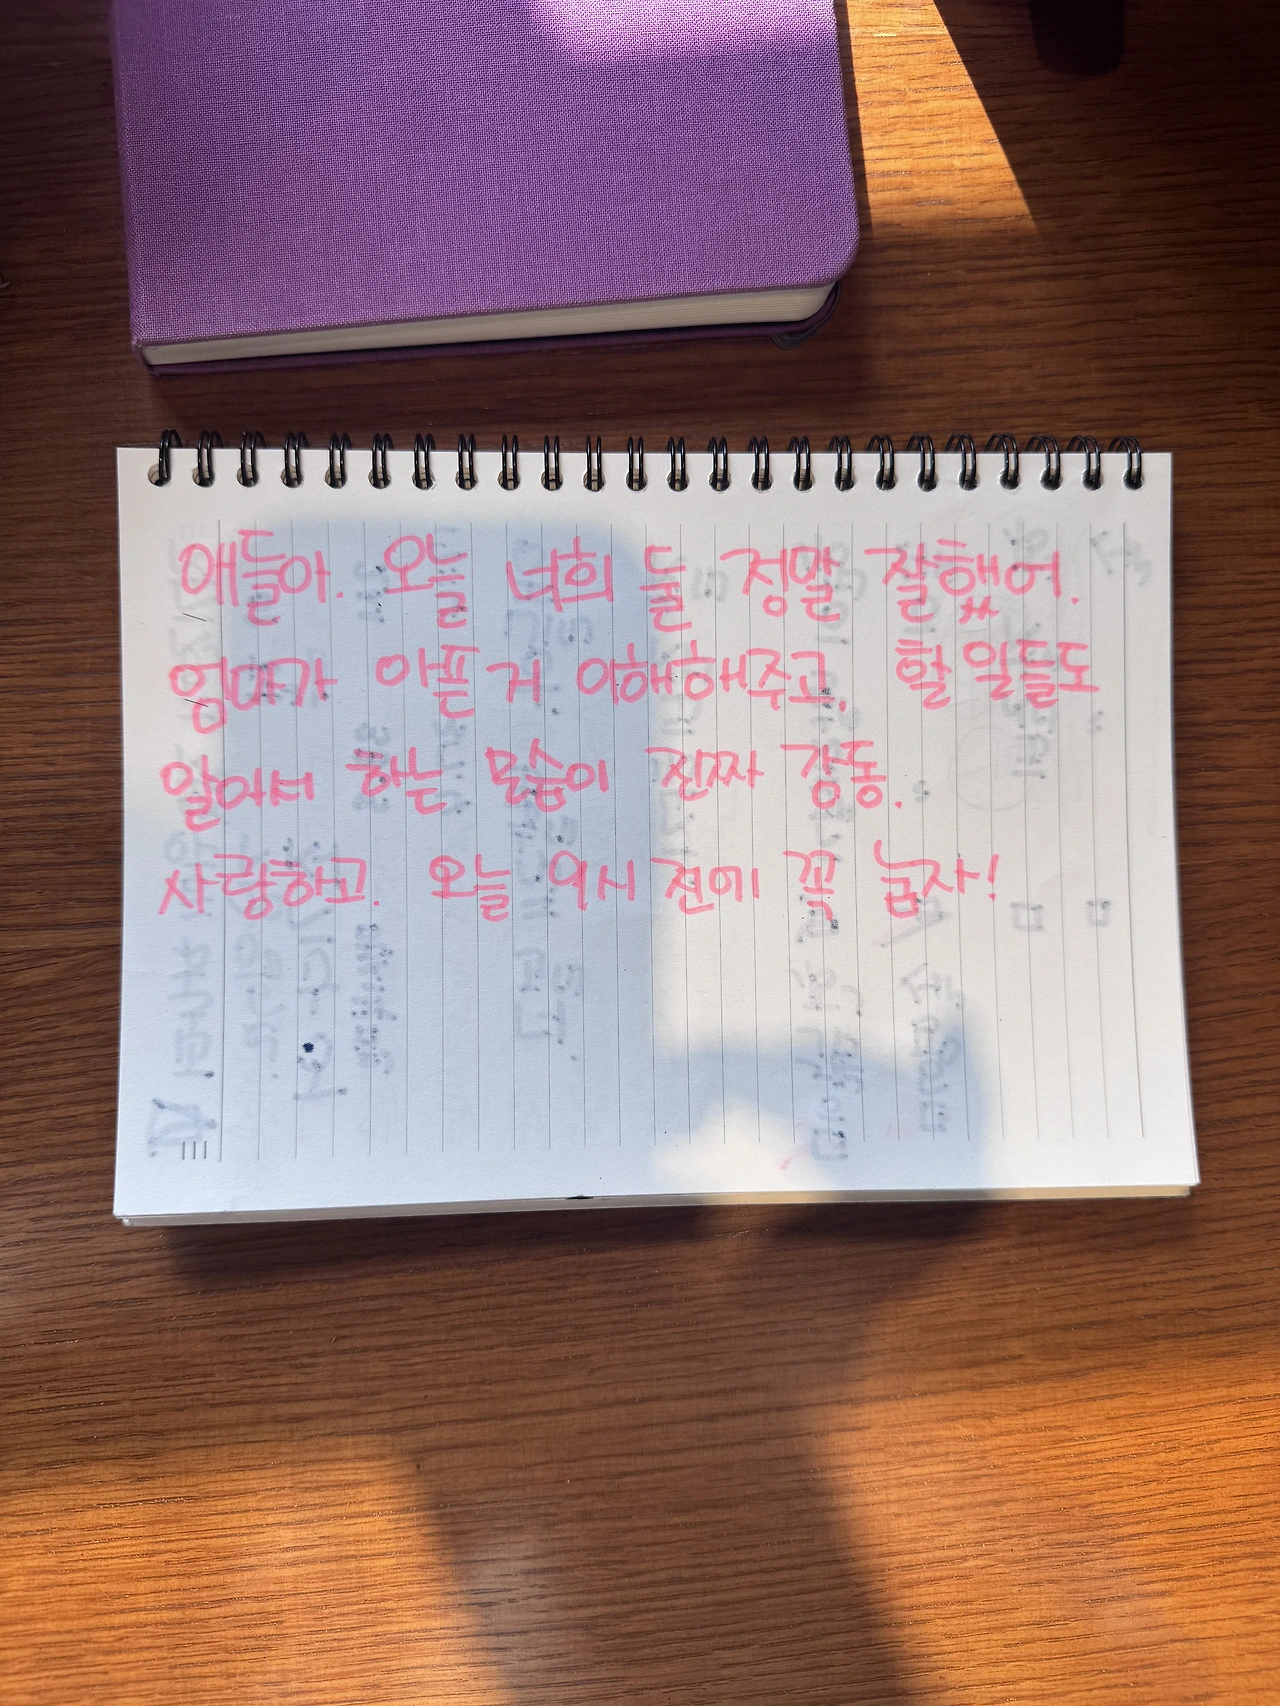 애들아. 오늘 너희 둘 정말 잘했어.
엄마가 아픈 거 이해해주고. 할 일들도
알아서 하는 모습이 진짜 감동.
사랑하고. 오늘 9시 전에 꼭 눕자!